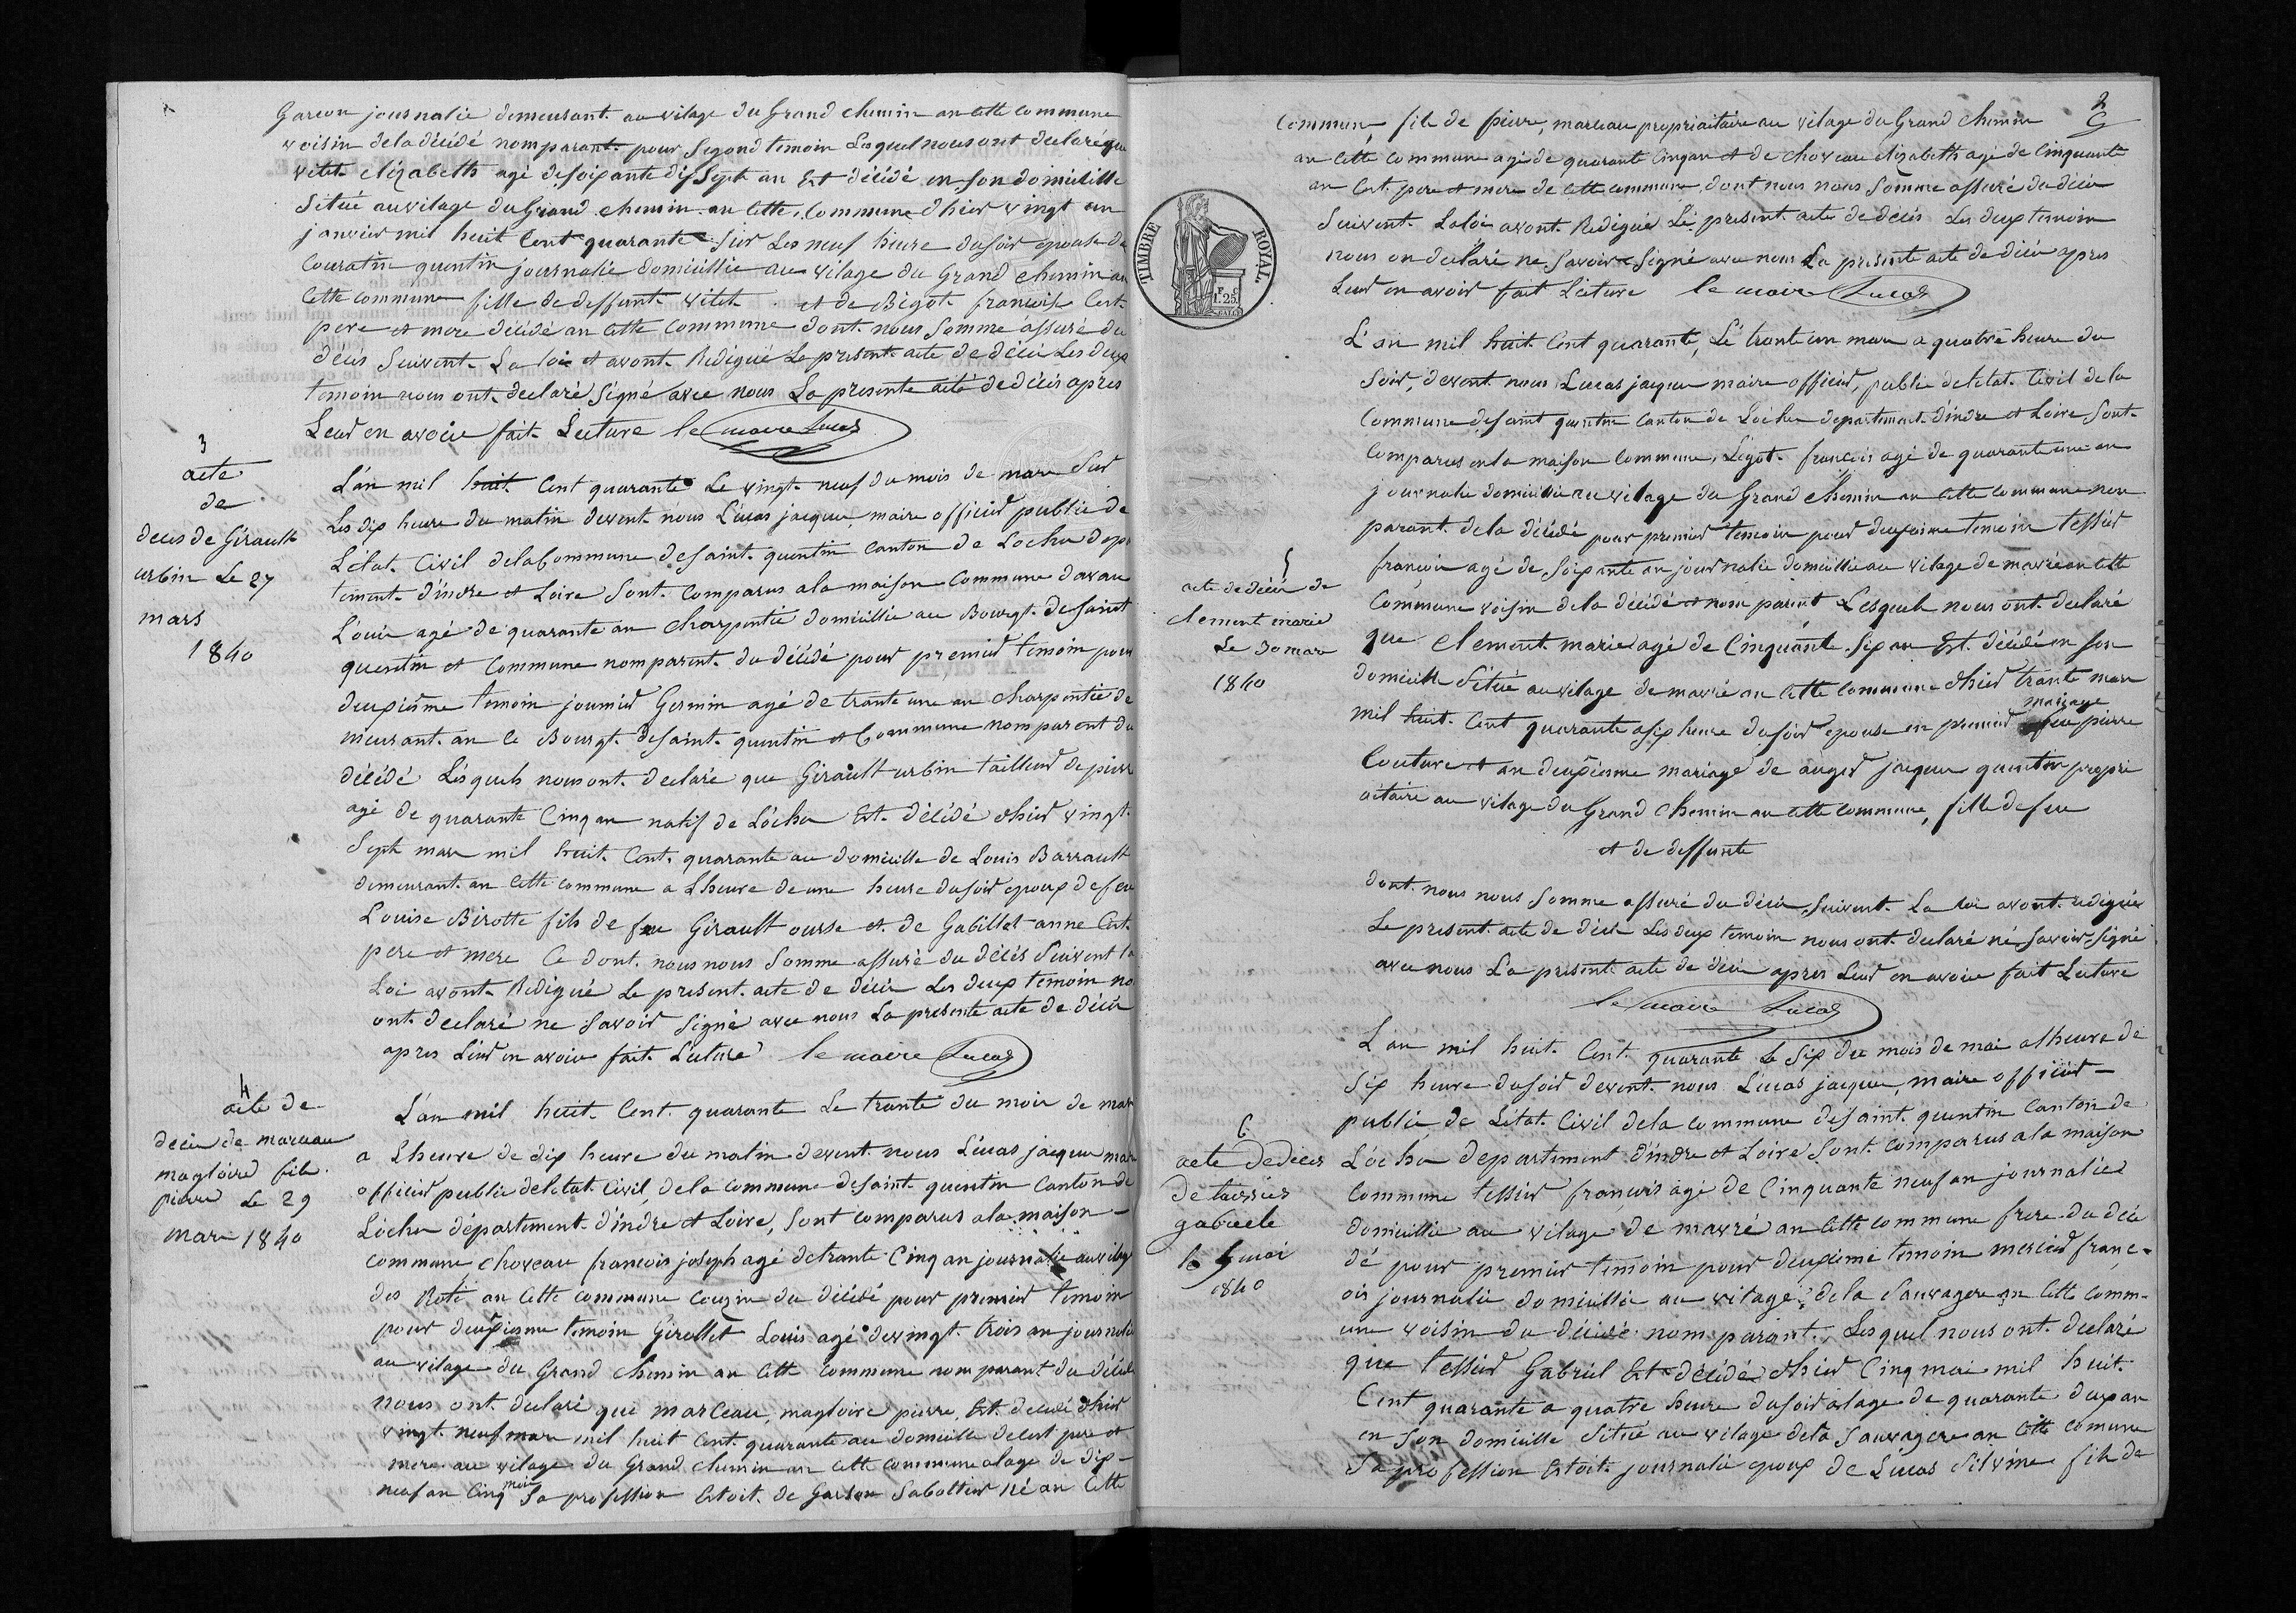 Garcon journalié demeurant au vilage du Grand chemin an cette commune
voisin dela décédé nomparant pour Segond temoin Lesquel nous ont declaré que
vitet élizabeth agé desoixante dissept an Est décédé en son domicille
Situé auvilage du Grand chemin an cette commune dhier vingt un
janvier mil huit Cent quarante Sur Les neuf heure dusoir epouse de
Couratin quentin journalié domicillié au vilage du Grand chemin an
Cette commune fille de deffunt vitet et de Bigot francoise Cert
pere et mere décédé an Cette Commune dont nous Somme assuré du
décés Suivent La loi et avont Redigué Le present acte de décés Les deux
temoin nous ont declaré Signé avec nous La presente acte de décés apres
Leur en avoir fait Lecture le maire Lucas
3
acte
de
deces de Girault
urbin Le 27
mars
1840
L'an mil huit Cent quarante Le vingt neuf du mois de mars Sur
Les dix heure du matin devent nous Lucas jacque, maire officier public de
L'état Civil dela Commune desaint quentin Canton de Loche dep
tement d'indre et Loire Sont Comparus ala maison Commune davau
Louis agé de quarante an Charpentié domicillié au Bourgt desaint
quentin et Commune nomparent du décédé pour premier temoin pour
deuxieme temoin journier Germin agé de trante une an Charpentié de
meurant an ce Bourgt desaint quentin et Commune nomparent du
décédé Lesquels nousont declaré que Girault urbin tailleur de pierr
agé de quarante Cinq an natif de Loche Est décédé dhier vingt
Sept mars mil huit Cent quarante au domicille de Louis Barrault
demeurant an Cette commune a Lheure de une heure dusoir epoux de feu
Louise Birotte fils de feu Girault ourse et de Gabillet anne Cert
pere et mere Ce dont nous nous Somme assuré du décés Suivent la
Loi avont Redigué Le present acte de décés Les deux temoin no
ont declaré ne Savoir Signé avec nous La presente acte de décés
apres Leur en avoir fait Lecture le maire Lucas
4
acte de
décés de marceau
magloire fils
pierre Le 29
mars 1840
L'an mil huit Cent quarante Le trante du mois de mar
a Lheure de dix heure du matin devent nous Lucas jacque mai
officier public deletat Civil, dela commune desaint quentin Canton de
Loche département d'indre et Loire, Sont comparus ala maison
commune choveau francois joseph agé detrante Cinq an journalié auvilag
des Roté an Cette commune Couzin du décédé pour premier temoin
pour deuxieme temoin Girollet Louis agé devingt trois an journalié
au vilage du Grand chemin an Cette Commune nomparant du décédé
nous ont declaré que marceau, magloire pierre, Est décédé dhier
vingt neuf mars mil huit Cent quarante au domicille decest pere et
mere au vilage du Grand chemin an Cette Commune alage de dix
neuf an Cinq mois Sa profession Estoit de Garson Sabottier né an Cette
2
Commune, fils de pierre, marceau propriaitaire au vilage du Grand chemin
an Cette Commune agé de quarante Cinqan et de choveau elizabeth agé de Cinquante
an Cert pere et mere de Cette commune, dont nous nous Somme assuré du décés
Suivent Laloi avont Redigué Le present acte de décés Les deux temoin
nous on declaré ne Savoir Signé avec nous La presente acte de décés apres
Leur en avoir fait Lecture le maire Lucas
TIMBRE ROYAL
1.25
L'an mil huit Cent quarante, Le trante un mars a quatre heure du
Soir, devent nous Lucas jacque maire officier, public deletat Civil dela
Commune desaint quentin Canton de Loche departement d'indre et Loire Sont
Comparus enla maison Commune, Légot francois agé de quarante une an
journalié domicillié au vilage du Grand chemin an Cette Commune non
parant dela décédé pour premier temoin pour deuxieme temoin tessier
francois agé de Soixante an journalié domicillié au vilage de mavré an Cette
Commune voisin dela décédé et nom parent Lesquels nous ont declaré
que Clement marie agé de Cinquante Six an Est décédé en Son
domicille Situé auvilage de mavré an Cette Commune dhier trante mars
mil huit Cent quarante a Six heure dusoir epouse en premier mariage feu pierre
Couture et an deuxieme mariage de auger jacque quentin propri
aitaire au vilage du Grand Chemin an Cette Commune, fille defeu
et de deffunte
dont nous nous Somme assuré du décés, Suivent La loi avont redigué
Le present acte de décés Les deux temoin nous ont declaré né Savoir Signé
avec nous La presente acte de décés apres Leur en avoir fait Lecture
le maire Lucas
5
acte de décés de
clement marie
Le 30 mars
1840
L'an mil huit Cent quarante Le Six du mois de mai a Lheure de
Six heure dusoir devent nous Lucas jacque, maire officier
public de Létat Civil dela commune desaint quentin Canton de
Loche departement d'indre et Loire Sont comparus ala maison
Commune tessier francois agé de Cinquante neuf an journalié
domicillié au vilage de mavré an Cette commune frere du déce
dé pour premier temoin pour deuxieme temoin mercier franc
ois journalié domicillié au vilage dela Sauvagere an Cette comm-
une voisin du décédé nom parant, Lesquel nous ont declaré
que tessier Gabriel Est décédé dhier Cinq mai mil huit
Cent quarante a quatre heure dusoir alage de quarante deux an
en Son domicille Situé au vilage dela Sauvagere an Cette Comune
Sa profession Estoit journalié epoux de Lucas Silvine fils de
6
acte de déces
de tessier
gabriele
le 5 mai
1840